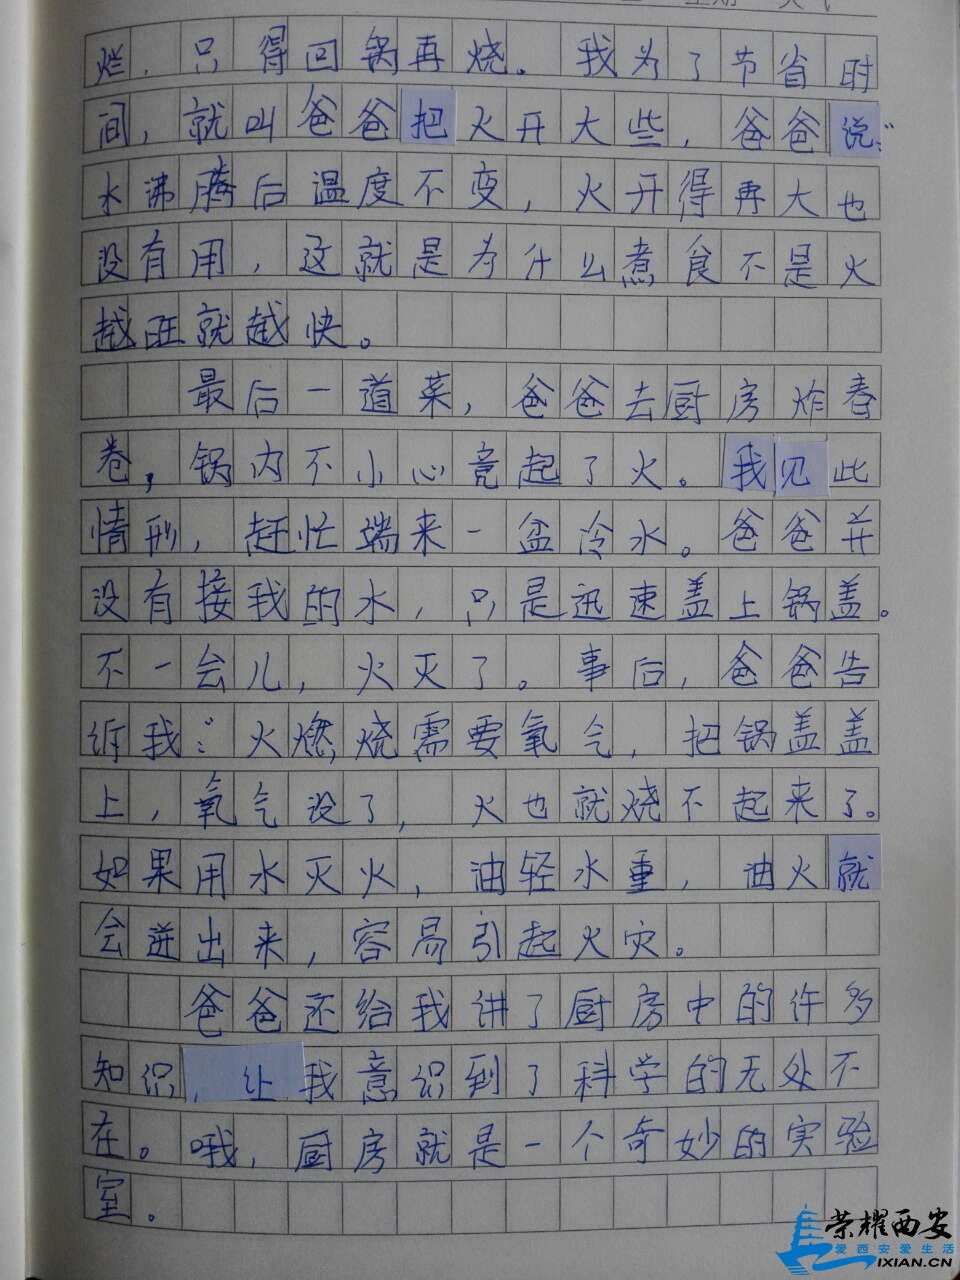 烂，只得回锅再烧。我为了节省时
间，就叫爸爸把火开大些，爸爸说：“
水沸腾后温度不变，火开得再大也
没有用，这就是为什么煮食不是火
越旺就越快。
最后一道菜，爸爸去厨房炸春
卷，锅内不小心竟起了火。我见此
情形，赶忙端来一盆冷水。爸爸并
没有接我的水，只是迅速盖上锅盖。
不一会儿，火灭了。事后，爸爸告
诉我：“火燃烧需要氧气，把锅盖盖
上，氧气没了，火也就烧不起来了。
如果用水灭火，油轻水重，油火就
会迸出来，容易引起火灾。
爸爸还给我讲了厨房中的许多
知识，让我意识到了科学的无处不
在。哦，厨房就是一个奇妙的实验
室。
荣耀西安
爱西安爱生活
IXIAN.CN